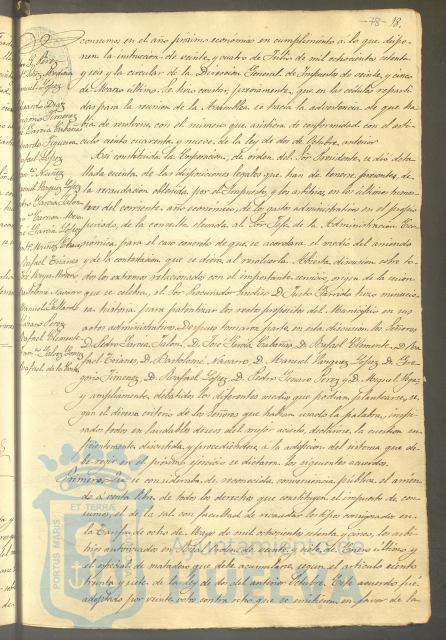 18.
consumos en el año próximo económico en cumplimiento á lo que dispo-
nen la instrucción de veinte y cuatro de Julio de mil ochocientos setenta
y seis y la circular de la Dirección General de Impuestos de veinte y cinco
de Marzo último. Se hizo constar, previamente, que en las cédulas reparti-
das para la reunión de la Asamblea, se hacía la advertencia de que ha-
bría de reunirse con el número que asistiera de conformidad con el artí-
culo ciento cuarenta y nueve de la ley de dos de Octubre anterior
Así constituida la Corporación, de orden del Sor Presidente, se dió deta-
llada cuenta de las disposiciones legales que han de tenerse presentes, de
la recaudación obtenida por el Impuesto y los arbitrios en los últimos
del corriente año económico, de los gastos administrativos en el propio
periodo, de la consulta elevada al Sor Jefe de la Administración Eco-
nómica, para el caso concreto de que se acordara el medio del arriendo
y de la contestación que se diera al resolverla. Abierta discusión sobre to-
dos los extremos relacionados con el importante servicio origen de la sesión
que se celebra, el Sor Procurador Síndico D. Justo Garrido hizo minucio-
sa historia para patentizar los rectos propósitos del Municipio en sus
actos administrativos. Despues tomaron parte en esta discusión los Señores
D. Pedro Garcia Jalon, D. José Garcia Cabañas, D. Rafael Climente, D. Ra-
fael Trianes, D. Bartolomé Navarro, D. Manuel Vazquez Lopez, D. Gre-
gorio Jimenez, D. Rafael Lopez, D. Pedro Genaro Perez y D. Miguel
y ampliamente debatidos los diferentes medios que podian plantearse, se-
gún el diverso criterio de los Señores que habian usado la palabra, inspi-
rados todos en laudables deseos del mejor acierto, declárase la cuestión su-
ficientemente discutida, y procediéndose á la adopción del sistema que de-
be regir en el próximo ejercicio se dictaron los siguientes acuerdos.
Primero: Que se consideraba de reconocida conveniencia pública el arrien-
do á venta libre de todos los derechos que constituyen el impuesto de con-
sumos, el de la sal con facultad de recaudar los tipos consignados en
la Tarifa de ocho de Mayo de mil ochocientos setenta y cinco, los arbi-
trios autorizados en Real orden de veinte y siete de Enero último y
el especial de matadero que debe acumularse, según el artículo ciento
treinta y siete de la ley de dos del anterior Octubre. Este acuerdo fué
adoptado por veinte votos contra ocho que se emitieron en favor de la
Rafael Lopez
Rafael Trianes
Rafael Climente
PORTUS MARIS ET TERRAE
Ayuntamiento de
HUELVA